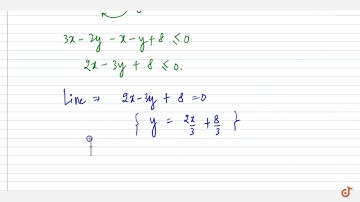 3x - 2y - x - y + 8 ≤ 0.
2x - 3y + 8 ≤ 0.
Line ⇒ 2x - 3y + 8 = 0
{ y = 2x/3 + 8/3 }